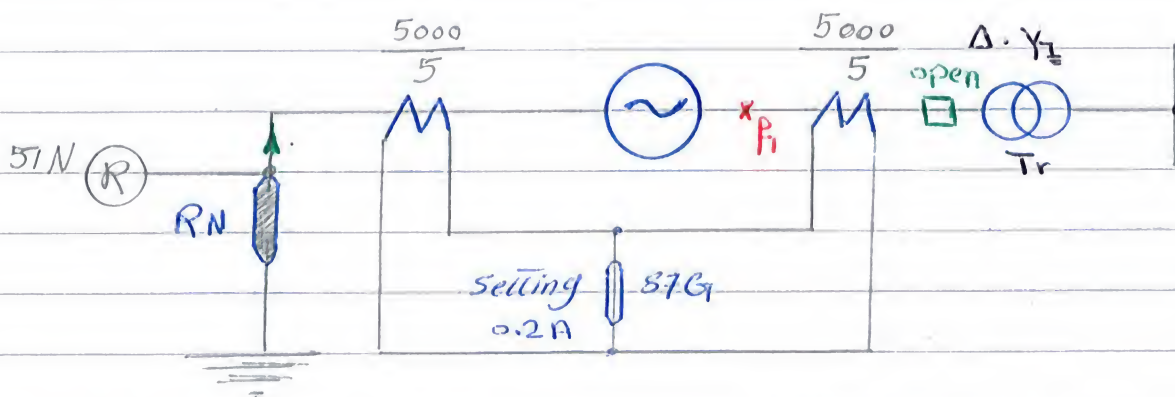 5000
5
5000
5
Δ . Y⏚
open
P1
Tr
51N
R
RN
Setting
0.2A
87G